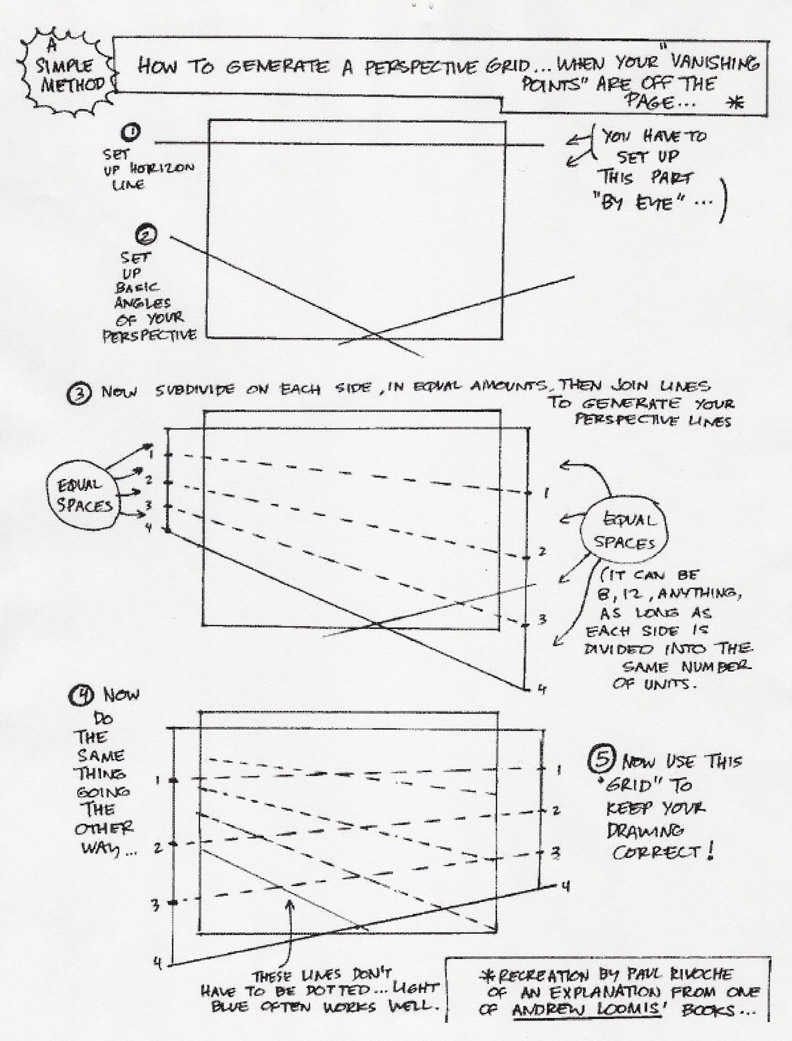 A
SIMPLE
METHOD
HOW TO GENERATE A PERSPECTIVE GRID... WHEN YOUR "VANISHING
POINTS" ARE OFF THE
PAGE... *
1
SET
UP HORIZON
LINE
(YOU HAVE TO
SET UP
THIS PART
"BY EYE"...)
2
SET
UP
BASIC
ANGLES
OF YOUR
PERSPECTIVE
3 NOW SUBDIVIDE ON EACH SIDE, IN EQUAL AMOUNTS, THEN JOIN LINES
TO GENERATE YOUR
PERSPECTIVE LINES
EQUAL
SPACES
1
2
3
4
1
2
3
4
EQUAL
SPACES
(IT CAN BE
8, 12, ANYTHING,
AS LONG AS
EACH SIDE IS
DIVIDED INTO THE
SAME NUMBER
OF UNITS.
4 NOW
DO
THE
SAME
THING
GOING
THE
OTHER
WAY...
1
2
3
4
1
2
3
4
5 NOW USE THIS
"GRID" TO
KEEP YOUR
DRAWING
CORRECT!
THESE LINES DON'T
HAVE TO BE DOTTED... LIGHT
BLUE OFTEN WORKS WELL.
*RECREATION BY PAUL RIVOCHE
OF AN EXPLANATION FROM ONE
OF ANDREW LOOMIS' BOOKS...